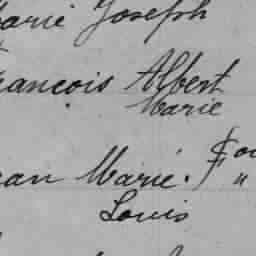 arie Joseph
rançois Albert
Marie
ean Marie.
Louis